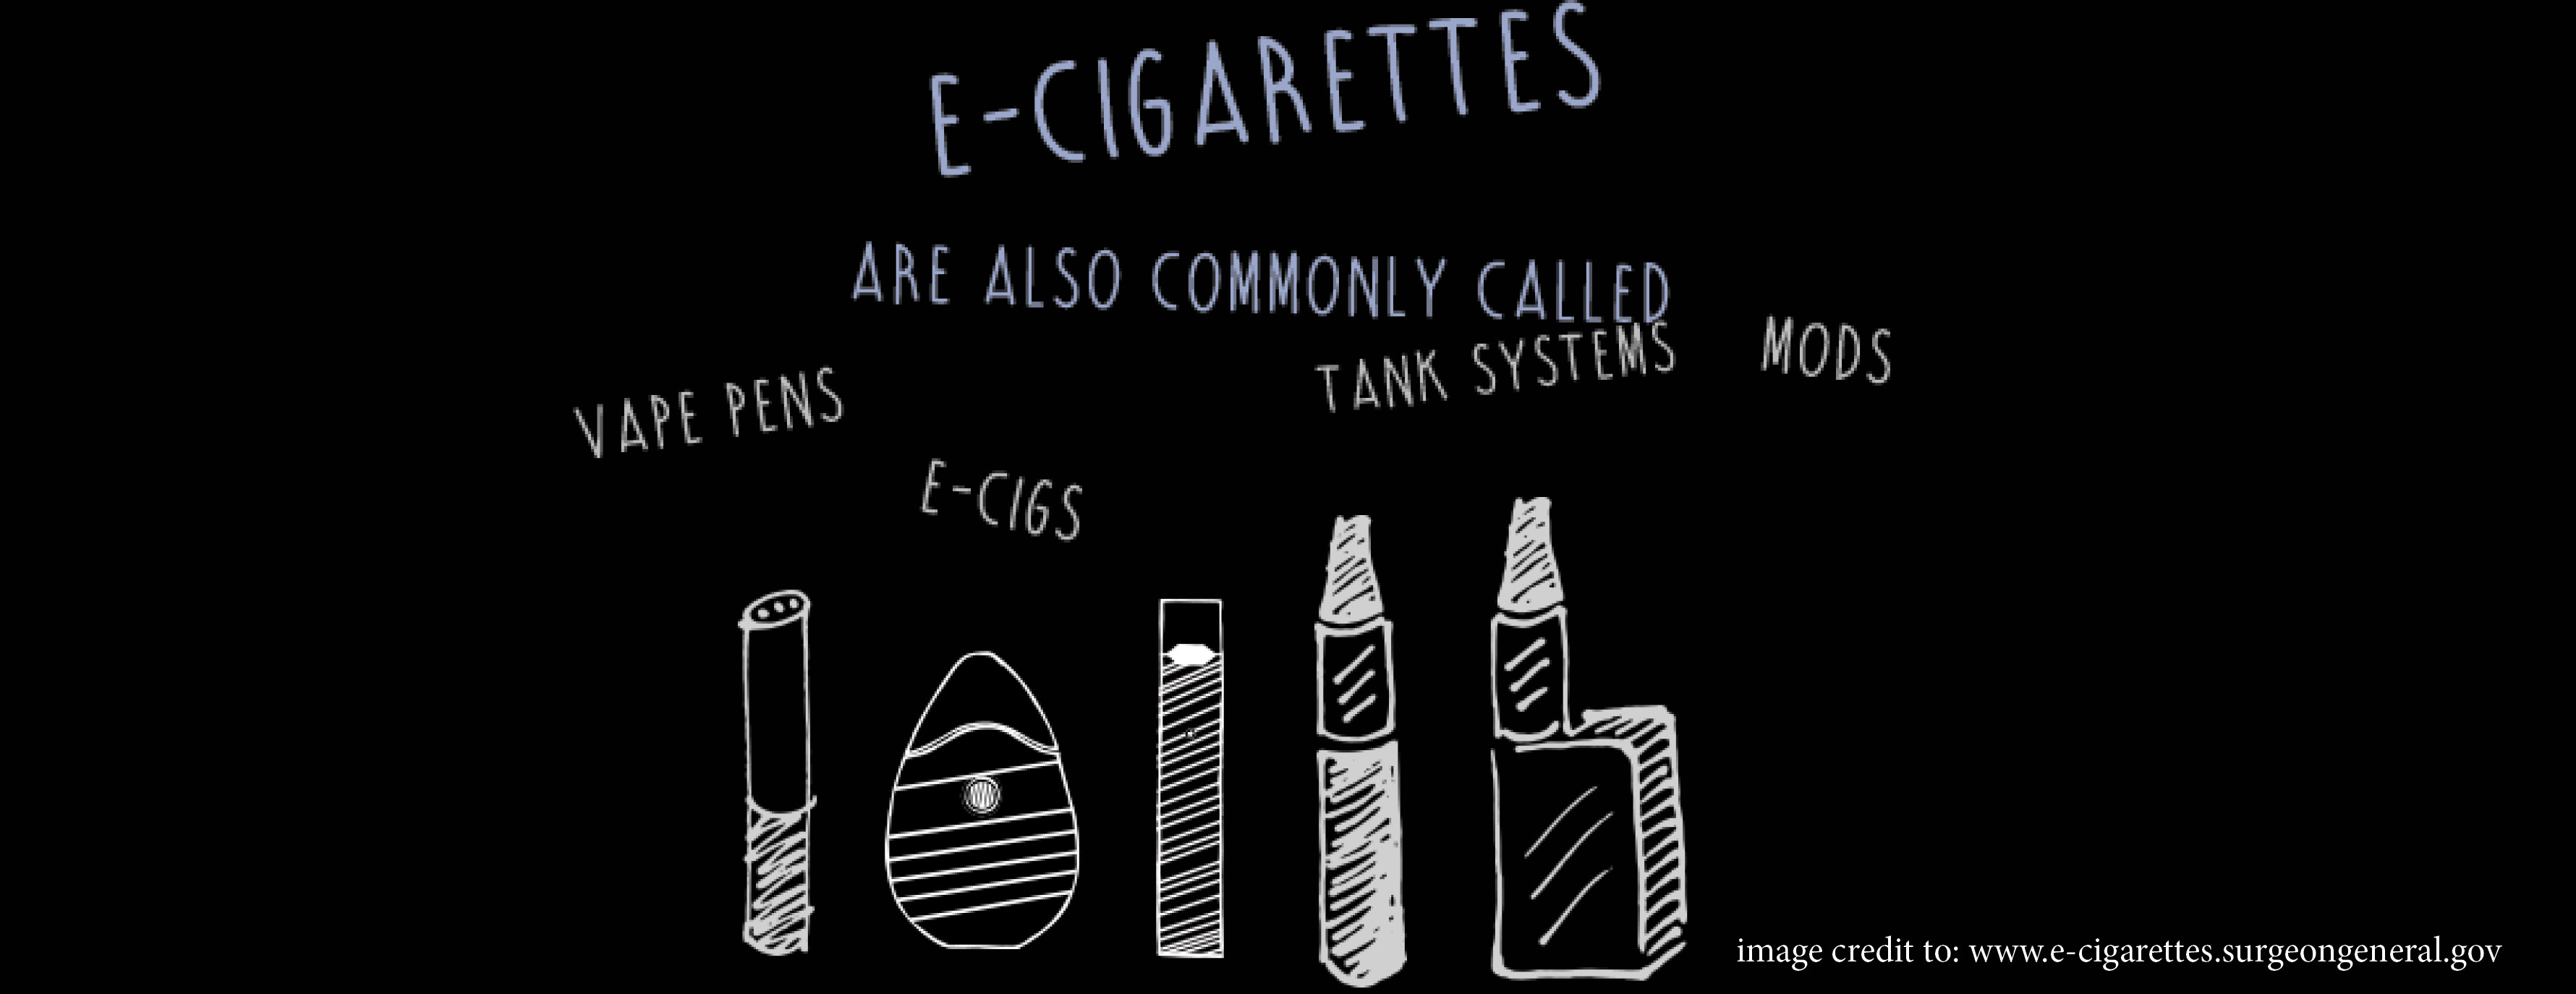 E-CIGARETTES
ARE ALSO COMMONLY CALLED
VAPE PENS
E-CIGS
TANK SYSTEMS
MODS
image credit to: www.e-cigarettes.surgeongeneral.gov